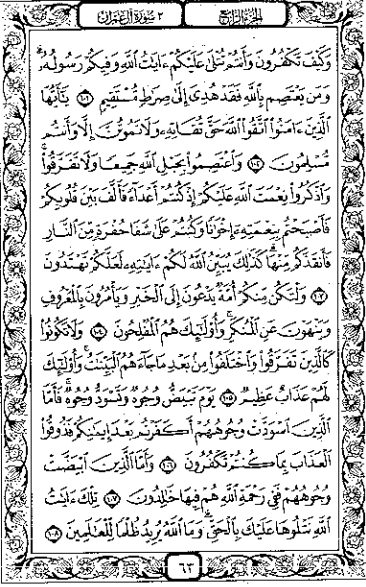 ٣ سورة آل عمران    الجزء الرابع
وَكَيْفَ تَكْفُرُونَ وَأَنتُمْ تُتْلَىٰ عَلَيْكُمْ ءَايَٰتُ ٱللَّهِ وَفِيكُمْ رَسُولُهُۥ ۗ
وَمَن يَعْتَصِم بِٱللَّهِ فَقَدْ هُدِىَ إِلَىٰ صِرَٰطٍ مُّسْتَقِيمٍ ١٠١ يَٰٓأَيُّهَا
ٱلَّذِينَ ءَامَنُوا۟ ٱتَّقُوا۟ ٱللَّهَ حَقَّ تُقَاتِهِۦ وَلَا تَمُوتُنَّ إِلَّا وَأَنتُم
مُّسْلِمُونَ ١٠٢ وَٱعْتَصِمُوا۟ بِحَبْلِ ٱللَّهِ جَمِيعًا وَلَا تَفَرَّقُوا۟ ۚ
وَٱذْكُرُوا۟ نِعْمَتَ ٱللَّهِ عَلَيْكُمْ إِذْ كُنتُمْ أَعْدَآءً فَأَلَّفَ بَيْنَ قُلُوبِكُمْ
فَأَصْبَحْتُم بِنِعْمَتِهِۦٓ إِخْوَٰنًا وَكُنتُمْ عَلَىٰ شَفَا حُفْرَةٍ مِّنَ ٱلنَّارِ
فَأَنقَذَكُم مِّنْهَا ۗ كَذَٰلِكَ يُبَيِّنُ ٱللَّهُ لَكُمْ ءَايَٰتِهِۦ لَعَلَّكُمْ تَهْتَدُونَ
١٠٣ وَلْتَكُن مِّنكُمْ أُمَّةٌ يَدْعُونَ إِلَى ٱلْخَيْرِ وَيَأْمُرُونَ بِٱلْمَعْرُوفِ
وَيَنْهَوْنَ عَنِ ٱلْمُنكَرِ ۚ وَأُو۟لَٰٓئِكَ هُمُ ٱلْمُفْلِحُونَ ١٠٤ وَلَا تَكُونُوا۟
كَٱلَّذِينَ تَفَرَّقُوا۟ وَٱخْتَلَفُوا۟ مِنۢ بَعْدِ مَا جَآءَهُمُ ٱلْبَيِّنَٰتُ ۚ وَأُو۟لَٰٓئِكَ
لَهُمْ عَذَابٌ عَظِيمٌ ١٠٥ يَوْمَ تَبْيَضُّ وُجُوهٌ وَتَسْوَدُّ وُجُوهٌ ۚ فَأَمَّا
ٱلَّذِينَ ٱسْوَدَّتْ وُجُوهُهُمْ أَكَفَرْتُم بَعْدَ إِيمَٰنِكُمْ فَذُوقُوا۟
ٱلْعَذَابَ بِمَا كُنتُمْ تَكْفُرُونَ ١٠٦ وَأَمَّا ٱلَّذِينَ ٱبْيَضَّتْ
وُجُوهُهُمْ فَفِى رَحْمَةِ ٱللَّهِ هُمْ فِيهَا خَٰلِدُونَ ١٠٧ تِلْكَ ءَايَٰتُ
ٱللَّهِ نَتْلُوهَا عَلَيْكَ بِٱلْحَقِّ ۗ وَمَا ٱللَّهُ يُرِيدُ ظُلْمًا لِّلْعَٰلَمِينَ ١٠٨
٦٣